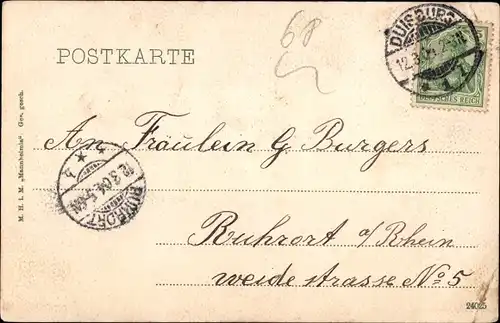 6P
DUISBURG
12.3.04.
DEUTSCHES REICH
POSTKARTE
M. H. i. M. „Mannheimia“ Ges. gesch.
An Fräulein G Burgers
RUHRORT
12.3.04.
Ruhrort a/Rhein
weide strasse No 5
24025